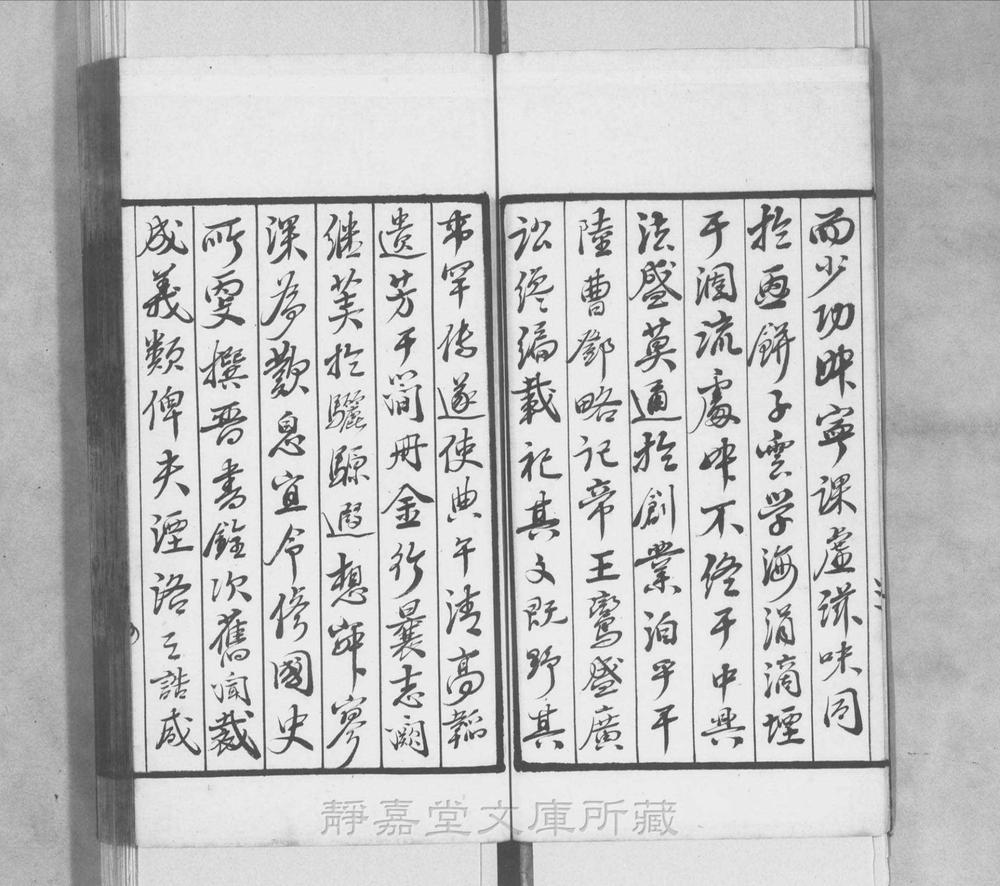 而少功叔寧課虛滋味同
於畫餅子雲學海涓滴堙
于涸流處叔不終于中興
法盛莫通於創業洎乎干
陸曹鄧略記帝王鸞盛廣
訟纔編載祀其文既野其
事罕傳遂使典午清高韜
遺芳于簡冊金行曩志闕
繼美於驪騵遐想寂寥
深為歎息宜令修國史
所更撰晉書銓次舊聞裁
成義類俾夫湮洛之誥咸
靜嘉堂文庫所藏